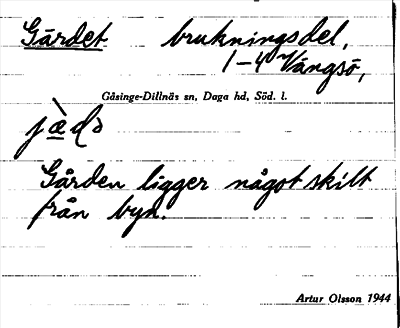 Gärdet brukningsdel,
1-4 Vängsö,
Gåsinge-Dillnäs sn, Daga hd, Söd. l.
Gården ligger något skilt
från byn.
Artur Olsson 1944